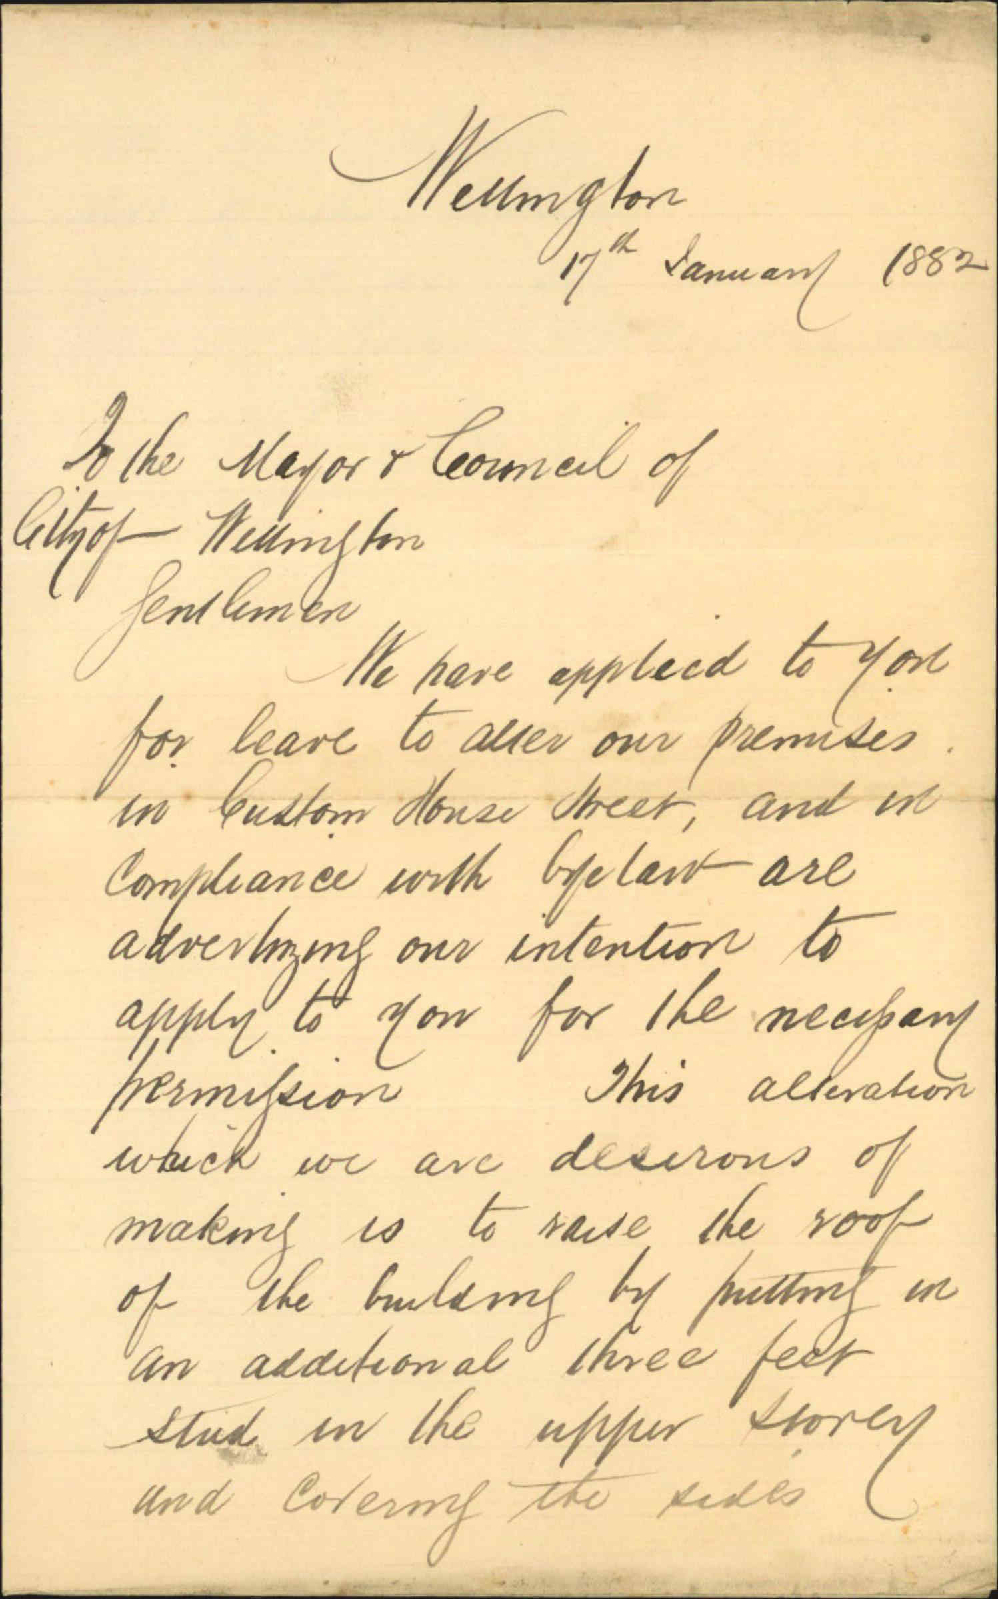 Wellington
17th January 1882
To the Mayor & Council of
City of Wellington
Gentlemen
We have applied to you
for leave to alter our premises
in Custom House Street, and in
compliance with byelaw are
advertizing our intention to
apply to you for the necessary
permission This alteration
which we are desirous of
making is to raise the roof
of the building by putting in
an additional three feet
stud in the upper storey
and covering the sides